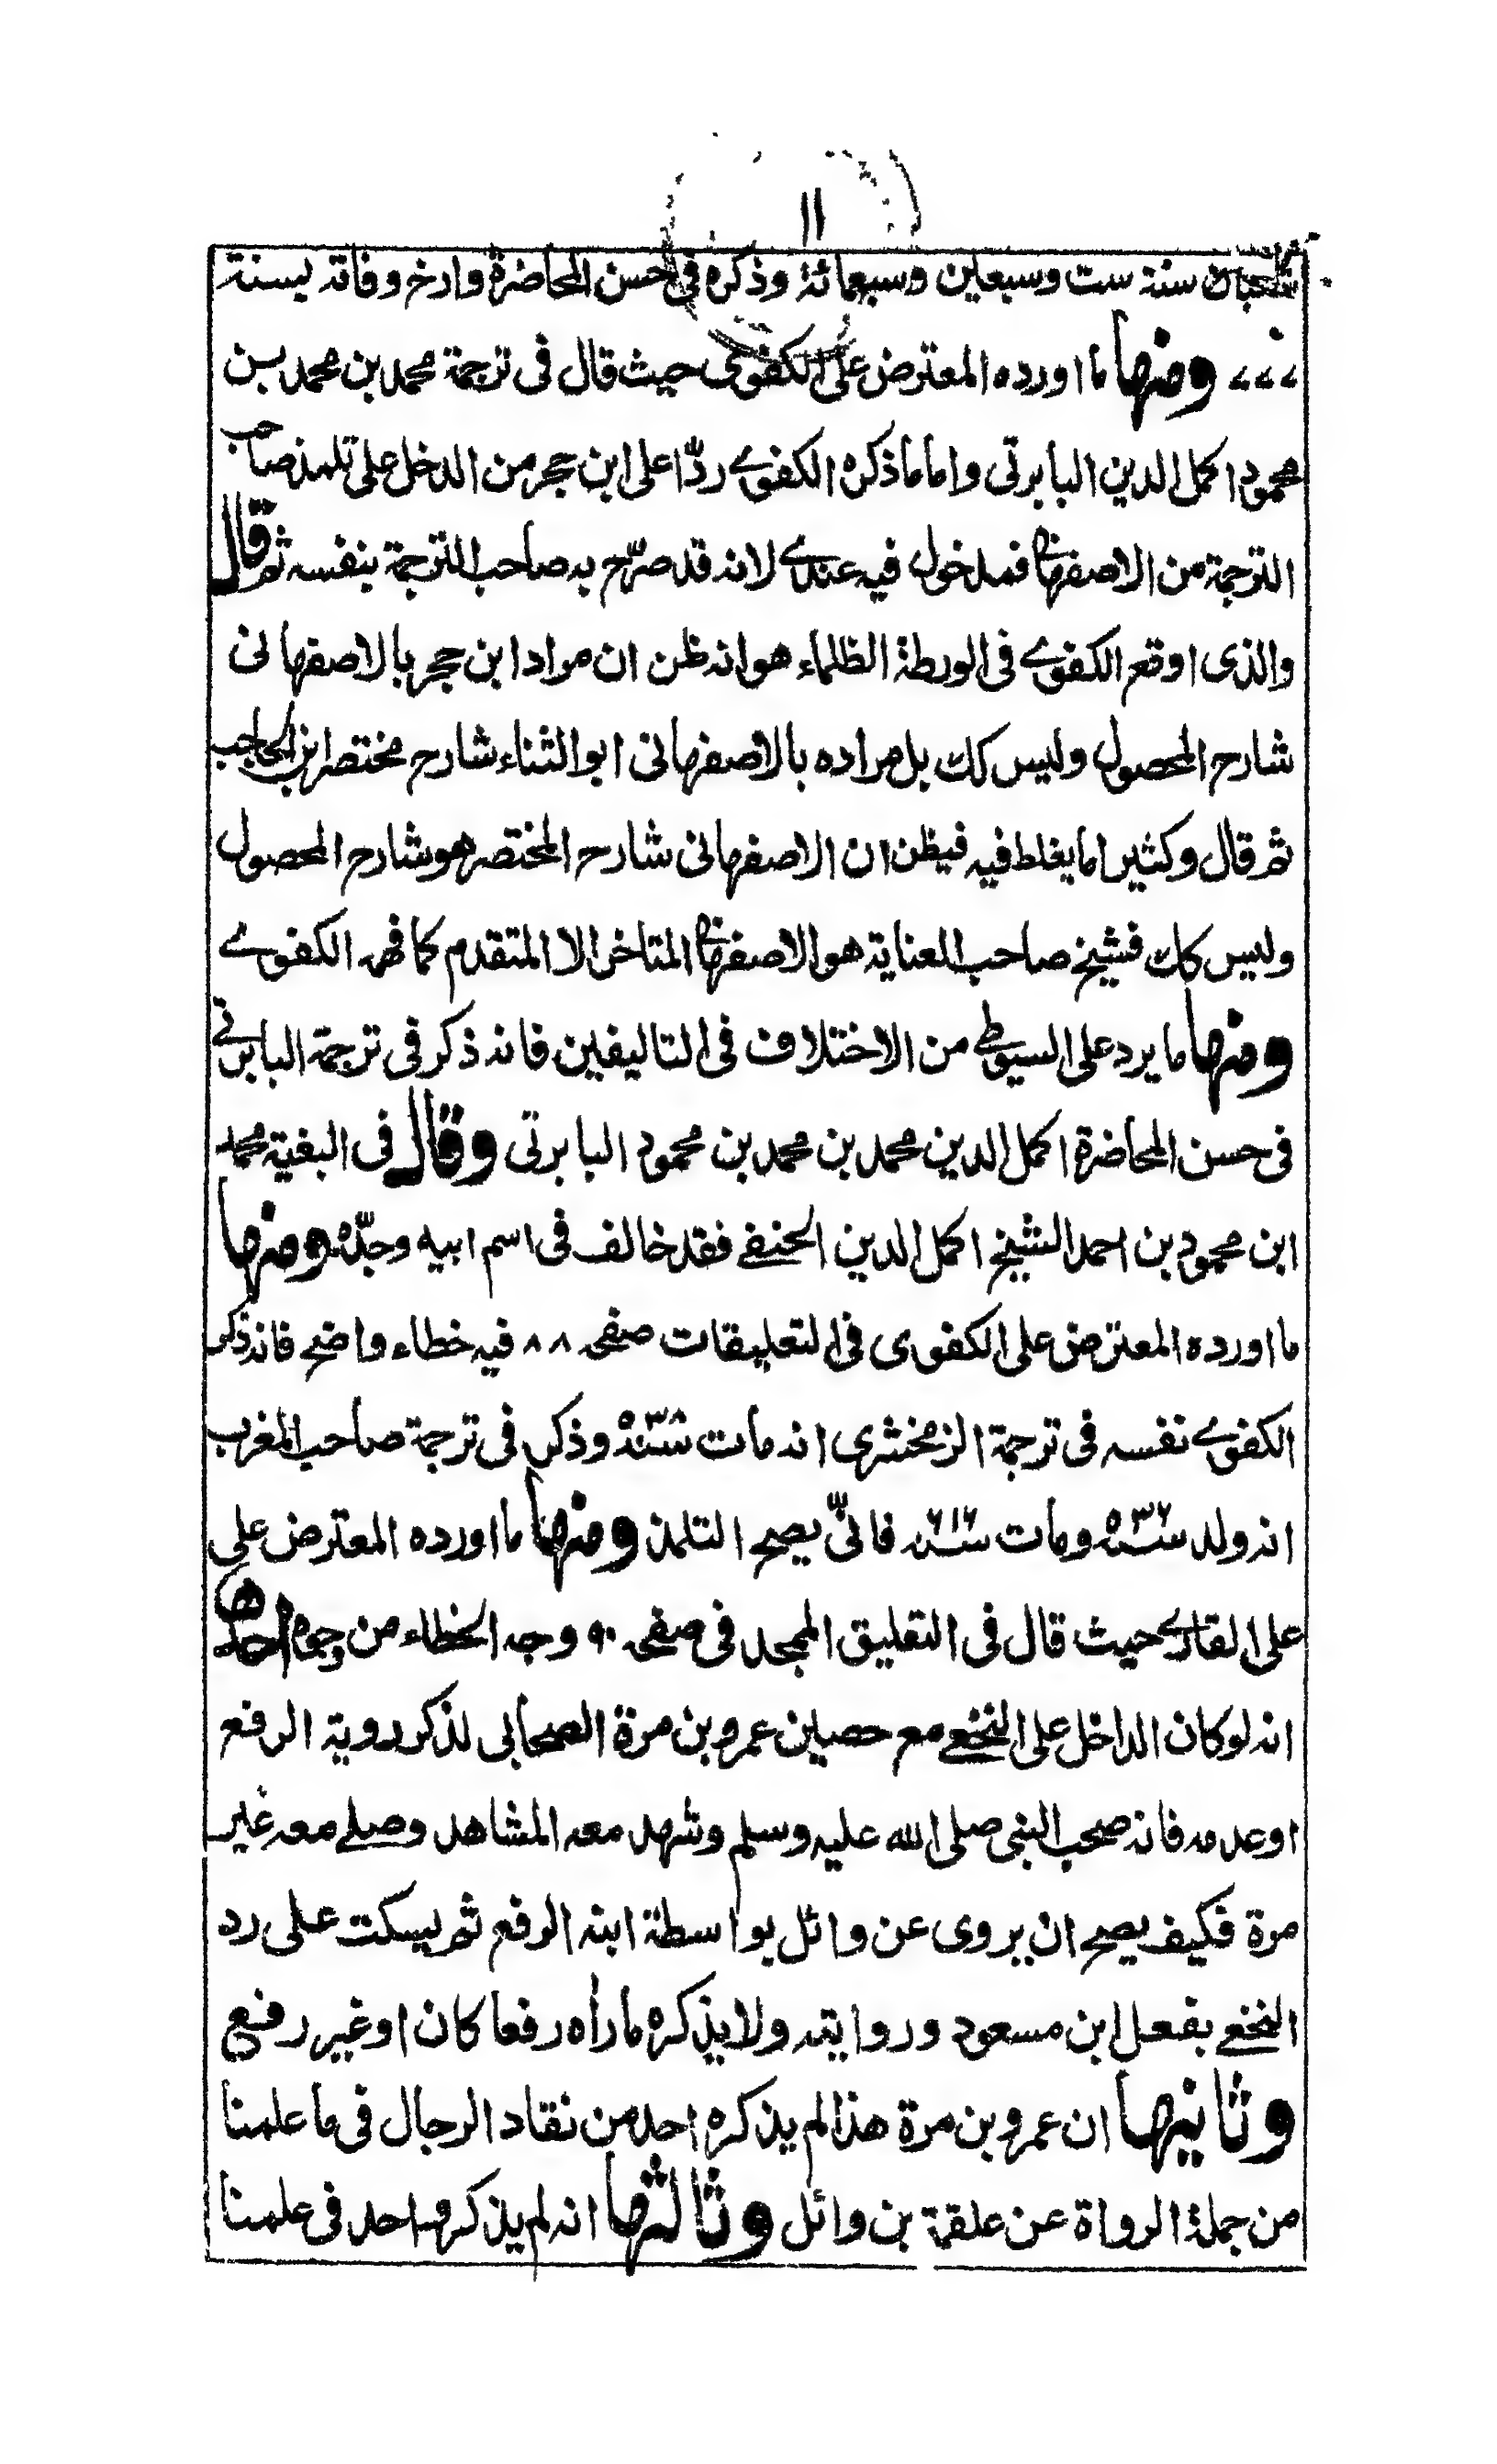 ۱۱
شعبان سنة ست وسبعين وسبعمائة وذكره فى حسن المحاضرة وارخ وفاته بسنة
۷۷۷ ومنها ما اورده المعترض على الكفوى حيث قال فى ترجمة محمد بن محمد بن
محمود اكمل الدين البابرتى واما ما ذكره الكفوے ردّا على ابن حجر من الدخل على تلمذ صاحب
الترجمة من الاصفهانى فمدخول فيه عندے لانه قد صرّح به صاحب الترجمة بنفسه ثم قال
والذى اوقع الكفوے فى الورطة الظلماء هو انه ظن ان مراد ابن حجر بالاصفهانى
شارح المحصول وليس كك بل مراده بالاصفهانى ابو الثناء شارح مختصر ابن الحاجب
ثم قال وكثيرا ما يغلط فيه فيظن ان الاصفهانى شارح المختصر هو شارح المحصول
وليس كك فشيخ صاحب العناية هو الاصفهانى المتاخر الا المتقدم كما فهمه الكفوے
ومنها ما يرد على السيوطے من الاختلاف فى التاليفين فانه ذكر فى ترجمة البابرتے
فى حسن المحاضرة اكمل الدين محمد بن محمد بن محمود البابرتى وقال فى البغية محمد
ابن محمود بن احمد الشيخ اكمل الدين الحنفے فقد خالف فى اسم ابيه وجدّه ومنها
ما اورده المعترض على الكفوى فى التعليقات صفحه ۸۸ فيه خطاء واضح فانه ذكر
الكفوے نفسه فى ترجمة الزمخشرى انه مات سنة ۵۳۸ وذكر فى ترجمة صاحب المغرب
انه ولد سنة ۵۳۶ ومات سنة ۶۱۶ فانّى يصح التلمذ ومنها ما اورده المعترض على
على القارے حيث قال فى التعليق الممجد فى صفحه ۹۰ وجه الخطاء من وجوه احدها
انه لو كان الداخل على النخعے مع حصين عمرو بن مرة الصحابى لذكر روية الرفع
او عدمه فانه صحب النبى صلى الله عليه وسلم وشهد معه المشاهد وصلے معه غير
مرة فكيف يصح ان يروى عن وائل بواسطة ابنه الرفع ثم يسكت على رد
النخعے بفعل ابن مسعود وروايته ولا يذكره ما رأه رفعا كان او غير رفع
وثانيها ان عمرو بن مرة هذا لم يذكره احد من نقاد الرجال فى ما علمنا
من جملة الرواة عن علقمة بن وائل وثالثها انه لم يذكره احد فى علمنا